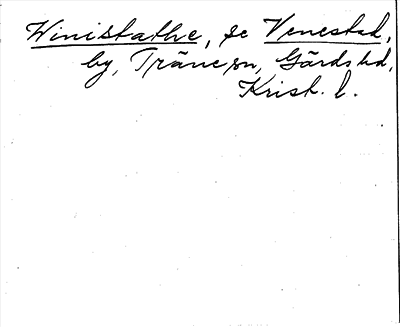 Winistathe, se Venestad,
by, Träne sn, Gärds hd,
Krist. l.